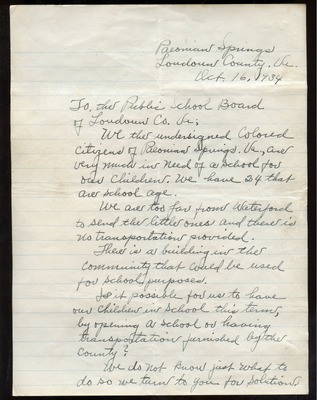 Paeonian Springs
Loudoun County, Va.
Oct 16, 1934
To, the Public School Board
of Loudoun Co. Va;
We the undersigned Colored
Citizens of Paeonian Springs. Va, are
very much in need of a School for
our Children. We have 24 that
are School age.
We are too far from Waterford
to send the little ones and there is
no transportation provided.
There is a building in the
Community that could be used
for School purposes.
Is it possible for us to have
our Children in School this term,
by opening a School or having
transportation furnished by the
County?
We do not know just what to
do so we turn to you for Solution